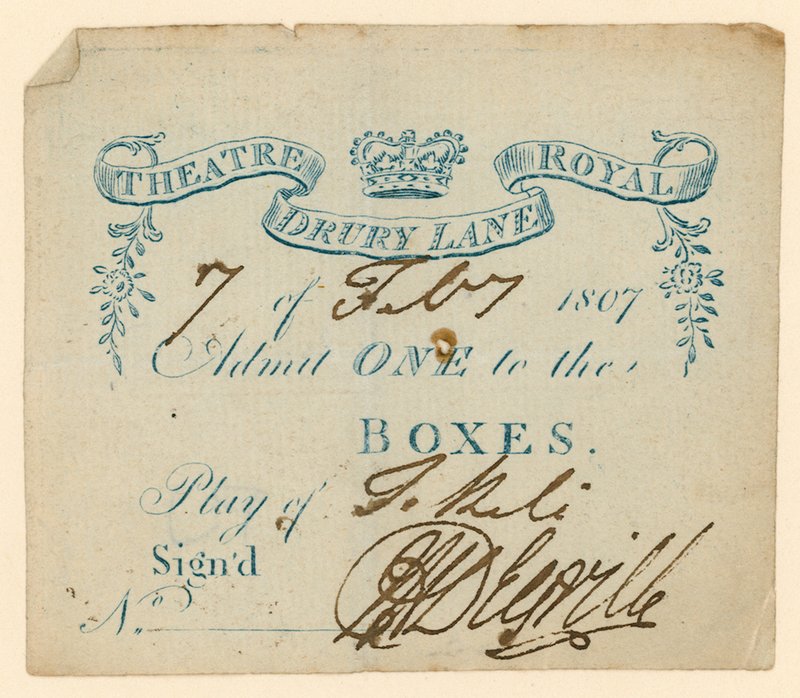 THEATRE ROYAL
DRURY LANE
7 of Feby 1807
Admit ONE to the
BOXES.
Play of Tekeli
Sign'd
No.